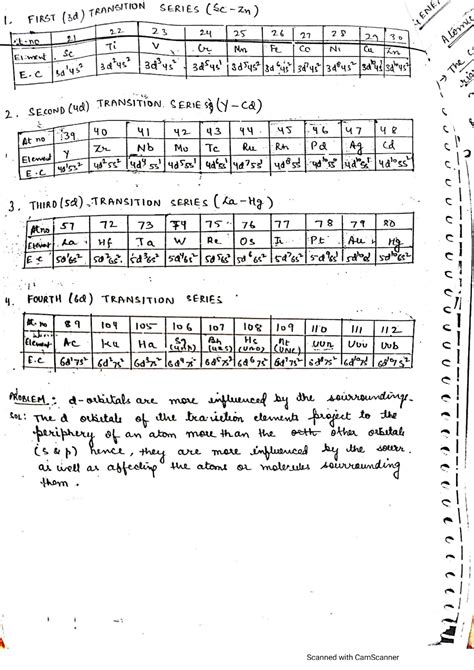 1. FIRST (3d) TRANSITION SERIES (Sc-Zn)
At.no 21 22 23 24 25 26 27 28 29 30
Element Sc Ti V Cr Mn Fe Co Ni Cu Zn
E.C 3d¹4s² 3d²4s² 3d³4s² 3d⁵4s¹ 3d⁵4s² 3d⁶4s² 3d⁷4s² 3d⁸4s² 3d¹⁰4s¹ 3d¹⁰4s²
2. SECOND (4d) TRANSITION SERIES (Y-Cd)
At no 39 40 41 42 43 44 45 46 47 48
Element Y Zr Nb Mo Tc Ru Rh Pd Ag Cd
E.C 4d¹5s² 4d²5s²
3. THIRD (5d) TRANSITION SERIES (La-Hg)
At.no 57 72 73 74 75 76 77 78 79 80
Element La Hf Ta W Re Os Ir Pt Au Hg
E.C 5d¹6s² 5d²6s² 5d³6s² 5d⁴6s² 5d⁵6s² 5d⁶6s² 5d⁷6s²
4. FOURTH (6d) TRANSITION SERIES
At. no 89 104 105 106 107 108 109 110 111 112
Element Ac Ku Ha Sg Bh Hs Mt Uun Uuu Uub
(Uns) (Uno) (Une)
E.C 6d¹7s² 6d²7s² 6d³7s² 6d⁴7s² 6d⁵7s² 6d⁶7s² 6d⁷7s²
PROBLEM:- d-orbitals are more influenced by the surrounding.
Sol: The d orbitals of the transition elements project to the
periphery of an atom more than the other orbitals
(s & p) hence, they are more influenced by the surr.
as well as affecting the atoms or molecules surrounding
them.
Atomic
The
Scanned with CamScanner